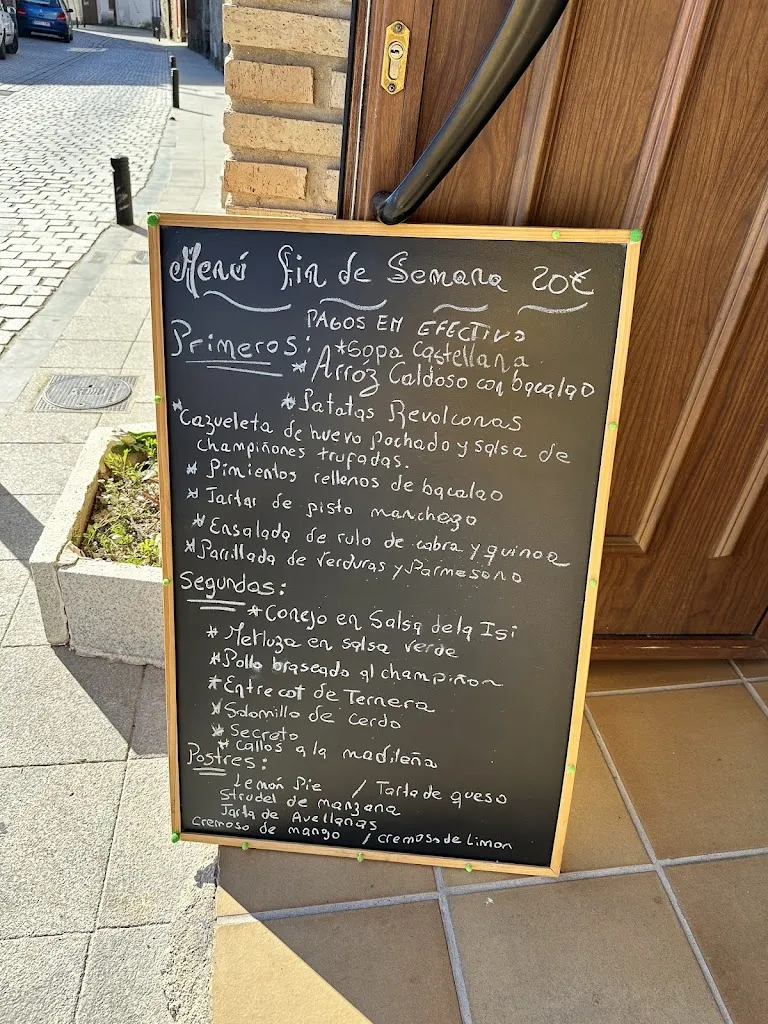 Menú fin de Semana 20€
PAGOS EN EFECTIVO
Primeros: *Sopa Castellana
* Arroz Caldoso con bacalao
* Patatas Revolconas
* Cazueleta de huevo pochado y salsa de
champiñones trufadas.
* Pimientos rellenos de bacalao
* Tartar de pisto manchego
* Ensalada de rulo de cabra y quinoa
* Parrillada de verduras y Parmesono
Segundos:
* Conejo en Salsa de la Isi
* Merluza en salsa verde
* Pollo braseado al champiñon
* Entrecot de Ternera
* Solomillo de cerdo
* Secreto
* Callos a la madileña
Postres:
Lemon Pie / Tarta de queso
Strudel de manzana
Tarta de Avellanas
Cremoso de mango / cremoso de Limon